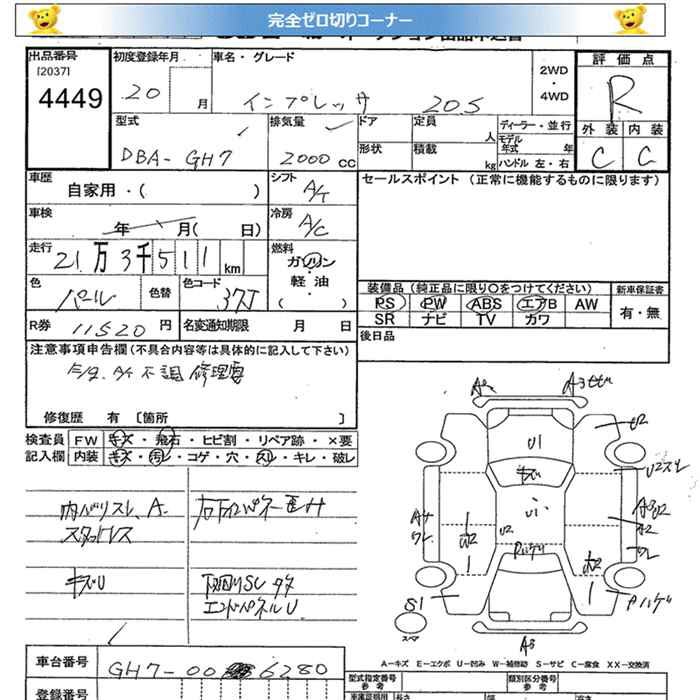 完全ゼロ切りコーナー
出品番号
[2037]
4449
初度登録年月
20 月
車名・グレード
インプレッサ 20S
2WD
・
4WD
評価点
R
外装 内装
C C
型式
DBA-GH7
排気量
2000 CC
ドア
定員
人
ディーラー・並行
モデル年式 年
形状
積載
kg
ハンドル 左・右
車歴
自家用・( )
シフト
A/T
セールスポイント (正常に機能するものに限ります)
車検
年 月( 日)
冷房
A/C
走行
21万3千511km
燃料
ガソリン
・
軽油
・
( )
色
パール
色替
色コード
37J
装備品 (純正品に限り○をつけてください)
新車保証書
PS PW ABS エアB AW
有・無
SR ナビ TV カワ
R券 11520 円
名変通知期限 月 日
後日品
注意事項申告欄(不具合内容等は具体的に記入して下さい)
A/T不調 修理要
修復歴 有 [箇所 ]
検査員 FW キズ・飛石・ヒビ割・リペア跡・×要
記入欄 内装 キズ・汚レ・コゲ・穴・スレ・キレ・破レ
内バリスレ、A-
スタッドレス
キズU
下回りSU サタ
エンドパネルU
A2
U1
キズ
U2スレ
U1
U2
A2
S1
スペア
Pハゲ
A-キズ E-エクボ U-凹み W-補修跡 S-サビ C-腐食 XX-交換済
車台番号
GH7-00 6280
型式指定番号
参考
類別区分番号
参考
登録番号
車庫証明用
参考
長さ
幅
高さ